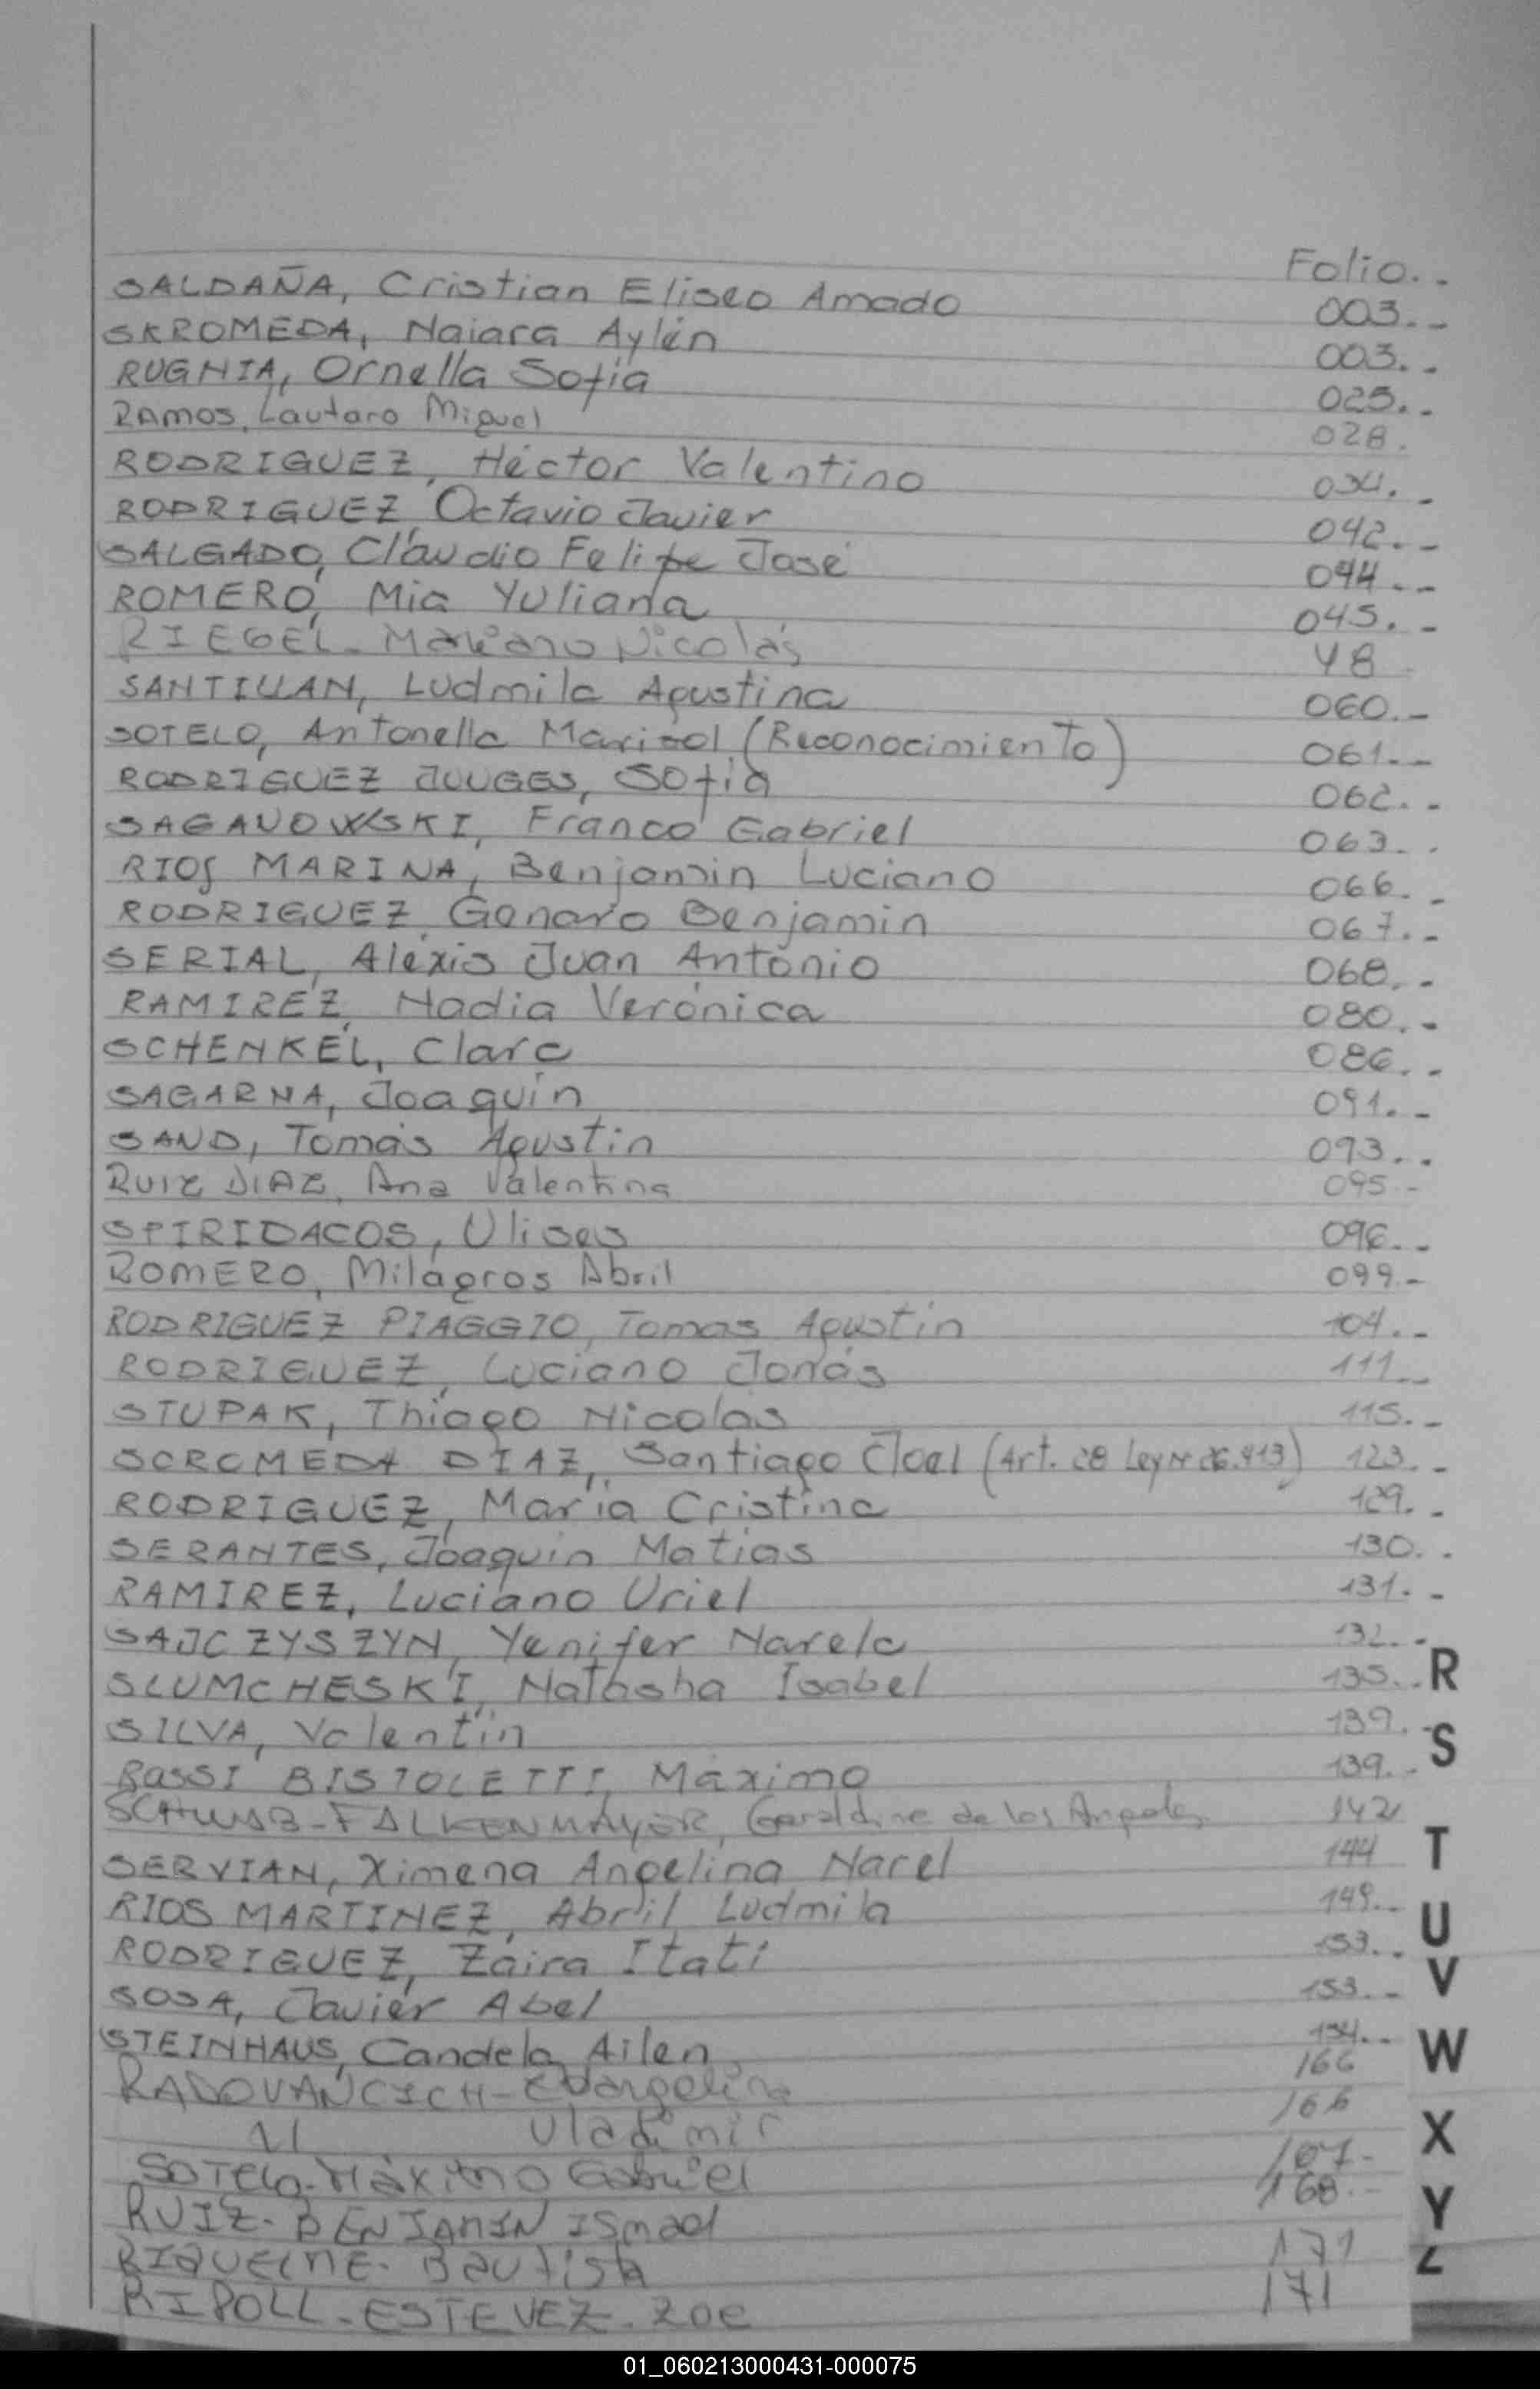 Folio.-
SALDAÑA, Cristian Eliseo Amado 003.-
SKROMEDA, Naiara Aylén 003.-
RUGNIA, Ornella Sofia 025.-
RAMOS, Lautaro Miguel 028.
RODRIGUEZ, Héctor Valentino 034.-
RODRIGUEZ, Octavio Javier 042.-
SALGADO, Claudio Felipe José 044.-
ROMERO, Mia Yuliana 045.-
RIEGEL - Mariano Nicolás 48
SANTILLAN, Ludmila Agustina 060.-
SOTELO, Antonella Marisol (Reconocimiento) 061.-
RODRIGUEZ JOUGES, Sofia 062.-
SAGANOWSKI, Franco Gabriel 063.-
RIOS MARINA, Benjamin Luciano 066.-
RODRIGUEZ, Genaro Benjamin 067.-
SERIAL, Alexis Juan Antonio 068.-
RAMIREZ, Nadia Verónica 080.-
SCHENKEL, Clara 086.-
SAGARNA, Joaquín 091.-
SAND, Tomás Agustin 093.-
RUIZ DIAZ, Ana Valentina 095-
SPIRIDACOS, Ulises 096.-
ROMERO, Milagros Abril 099.-
RODRIGUEZ PIAGGIO, Tomas Agustin 104.-
RODRIGUEZ, Luciano Jonás 111.-
STUPAK, Thiago Nicolas 115.-
SCROMEDA DIAZ, Santiago Joel (Art. 28 Ley Nº 26.413) 123.-
RODRIGUEZ, Maria Cristina 129.-
SERANTES, Joaquin Matias 130.-
RAMIREZ, Luciano Uriel 131.-
SAJCZYSZYN, Yenifer Narela 132.-
SLUMCHESKI, Natasha Isabel 135.-
SILVA, Valentín 139.-
ROSSI BISTOLETTI, Máximo 139.-
SCHWAB-FALKENMAYER, Geraldine de los Angeles 142
SERVIAN, Ximena Angelina Narel 144
RIOS MARTINEZ, Abril Ludmila 149.-
RODRIGUEZ, Zaira Itatí 153.-
SOSA, Javier Abel 153.-
STEINHAUS, Candela Ailen 154.-
RADOVANCICH - Evangelina 166
11 Vladimir 166
SOTELO - Máximo Gabriel 167-
RUIZ - BENJAMIN ISmael 168.-
RIQUELME - Bautista 171
RIPOLL - ESTEVEZ - Zoe 171
R
S
T
U
V
W
X
Y
Z
01_060213000431-000075